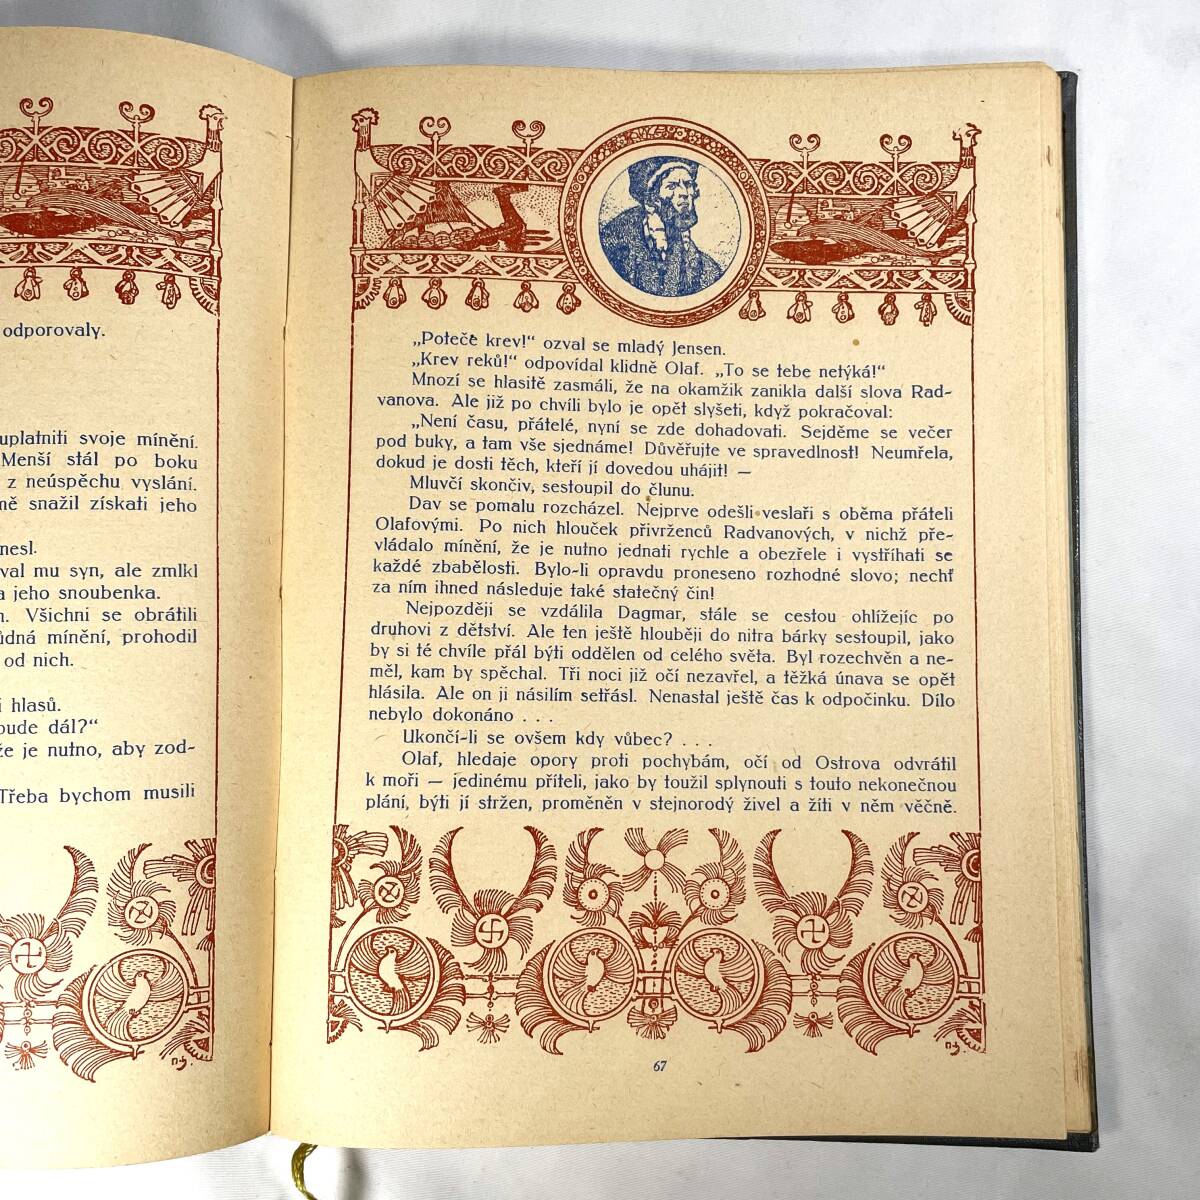 odporovaly.
uplatniti svoje mínění.
Menší stál po boku
z neúspěchu vyslání.
mě snažil získati jeho
nesl.
val mu syn, ale zmlkl
a jeho snoubenka.
Všichni se obrátili
ůdná mínění, prohodil
od nich.
i hlasů.
bude dál?“
že je nutno, aby zod-
Třeba bychom musili
„Poteče krev!“ ozval se mladý Jensen.
„Krev reků!“ odpovídal klidně Olaf. „To se tebe netýká!“
Mnozí se hlasitě zasmáli, že na okamžik zanikla další slova Rad-
vanova. Ale již po chvíli bylo je opět slyšeti, když pokračoval:
„Není času, přátelé, nyní se zde dohadovati. Sejděme se večer
pod buky, a tam vše sjednáme! Důvěřujte ve spravedlnost! Neumřela,
dokud je dosti těch, kteří jí dovedou uhájit! —
Mluvčí skončiv, sestoupil do člunu.
Dav se pomalu rozcházel. Nejprve odešli veslaři s oběma přáteli
Olafovými. Po nich hlouček přivrženců Radvanových, v nichž pře-
vládalo mínění, že je nutno jednati rychle a obezřele i vystříhati se
každé zbabělosti. Bylo-li opravdu proneseno rozhodné slovo; nechť
za ním ihned následuje také statečný čin!
Nejpozději se vzdálila Dagmar, stále se cestou ohlížejíc po
druhovi z dětství. Ale ten ještě hlouběji do nitra bárky sestoupil, jako
by si té chvíle přál býti oddělen od celého světa. Byl rozechvěn a ne-
měl, kam by spěchal. Tři noci již očí nezavřel, a těžká únava se opět
hlásila. Ale on ji násilím setřásl. Nenastal ještě čas k odpočinku. Dílo
nebylo dokonáno . . .
Ukončí-li se ovšem kdy vůbec? . . .
Olaf, hledaje opory proti pochybám, očí od Ostrova odvrátil
k moři — jedinému příteli, jako by toužil splynouti s touto nekonečnou
plání, býti jí stržen, proměněn v stejnorodý živel a žíti v něm věčně.
67